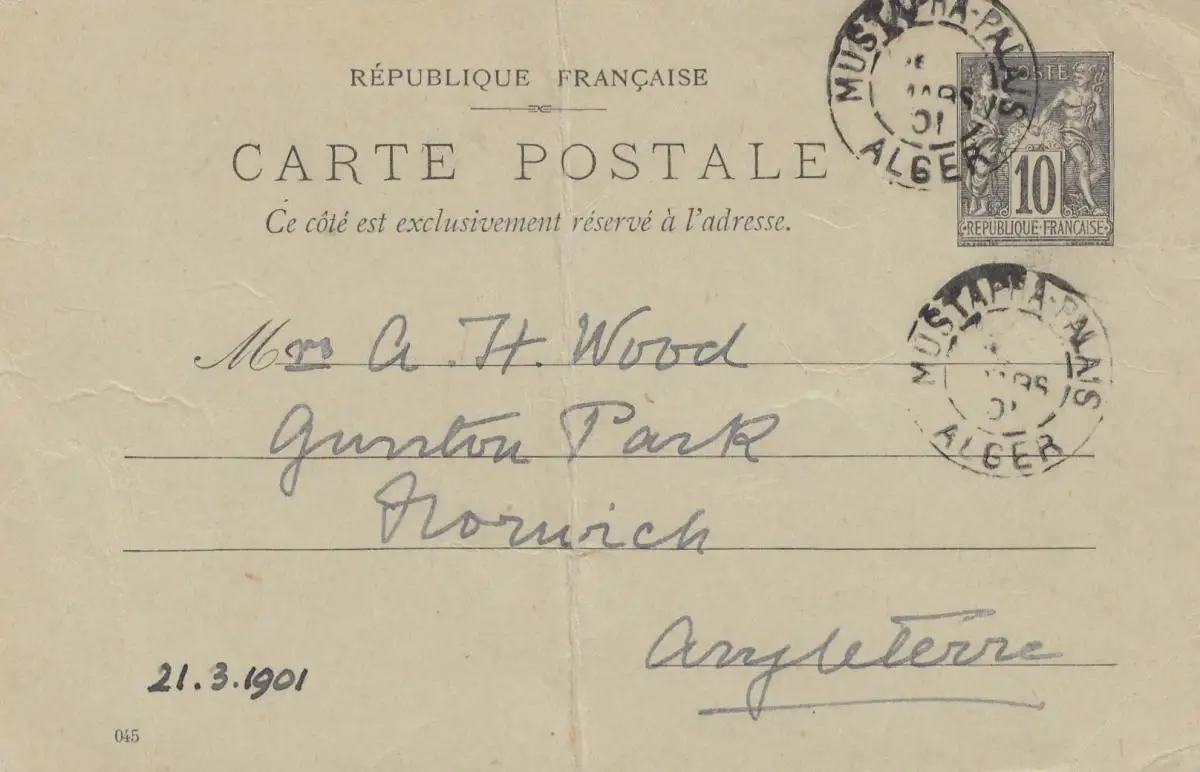 RÉPUBLIQUE FRANÇAISE
CARTE POSTALE
Ce côté est exclusivement réservé à l'adresse.
MUSTAPHA-PALAIS
MARS
01
ALGER
POSTE
10
REPUBLIQUE FRANÇAISE
Mrs A. H. Wood
Gunton Park
Norwich
Angleterre
MUSTAPHA-PALAIS
MARS
01
ALGER
21.3.1901
045